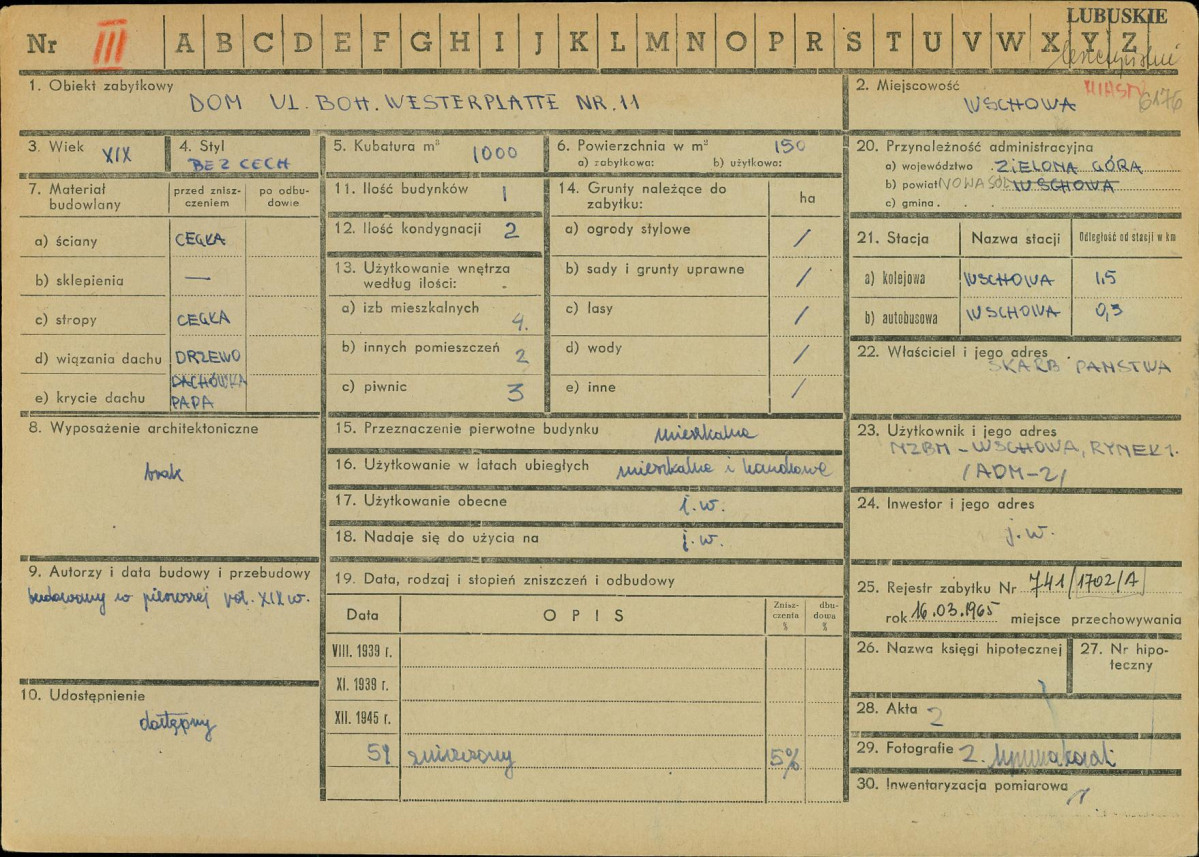 LUBUSKIE
Nr III A B C D E F G H I J K L M N O P R S T U V W X Y Z
1. Obiekt zabytkowy
DOM UL. BOH. WESTERPLATTE NR. 11
2. Miejscowość MIASTO 6176
WSCHOWA
3. Wiek XIX
4. Styl
BEZ CECH
5. Kubatura m³ 1000
6. Powierzchnia w m² 150
a) zabytkowa: b) użytkowa:
7. Materiał budowlany
przed zniszczeniem
po odbudowie
a) ściany CEGŁA
b) sklepienia —
c) stropy CEGŁA
d) wiązania dachu DRZEWO
e) krycie dachu DACHÓWKA
PAPA
8. Wyposażenie architektoniczne
brak
9. Autorzy i data budowy i przebudowy
budowany w pierwszej poł. XIX w.
10. Udostępnienie
dostępny
11. Ilość budynków 1
12. Ilość kondygnacji 2
13. Użytkowanie wnętrza
według ilości:
a) izb mieszkalnych 4.
b) innych pomieszczeń 2
c) piwnic 3
14. Grunty należące do
zabytku:
ha
a) ogrody stylowe /
b) sady i grunty uprawne /
c) lasy /
d) wody /
e) inne /
15. Przeznaczenie pierwotne budynku mieszkalne
16. Użytkowanie w latach ubiegłych mieszkalne i handlowe
17. Użytkowanie obecne j.w.
18. Nadaje się do użycia na j.w.
19. Data, rodzaj i stopień zniszczeń i odbudowy
Data OPIS Zniszczenia % dbudowa %
VIII. 1939 r.
XI. 1939 r.
XII. 1945 r.
59 zniszczony 5%
20. Przynoleżność administracyjna
a) województwo ZIELONA GÓRA
b) powiat NOWA SÓL WSCHOWA
c) gmina
21. Stacja Nazwa stacji Odległość od stacji w km
a) kolejowa WSCHOWA 1,5
b) autobusowa WSCHOWA 0,3
22. Właściciel i jego adres
SKARB PAŃSTWA
23. Użytkownik i jego adres
MZBM – WSCHOWA, RYNEK 1.
/ADM-2/
24. Inwestor i jego adres
j.w.
25. Rejestr zabytku Nr 741/1702/A
rok 16.03.1965 miejsce przechowywania
26. Nazwa księgi hipotecznej
27. Nr hipoteczny
28. Akta 2
29. Fotografie 2.
30. Inwentaryzacja pomiarowa